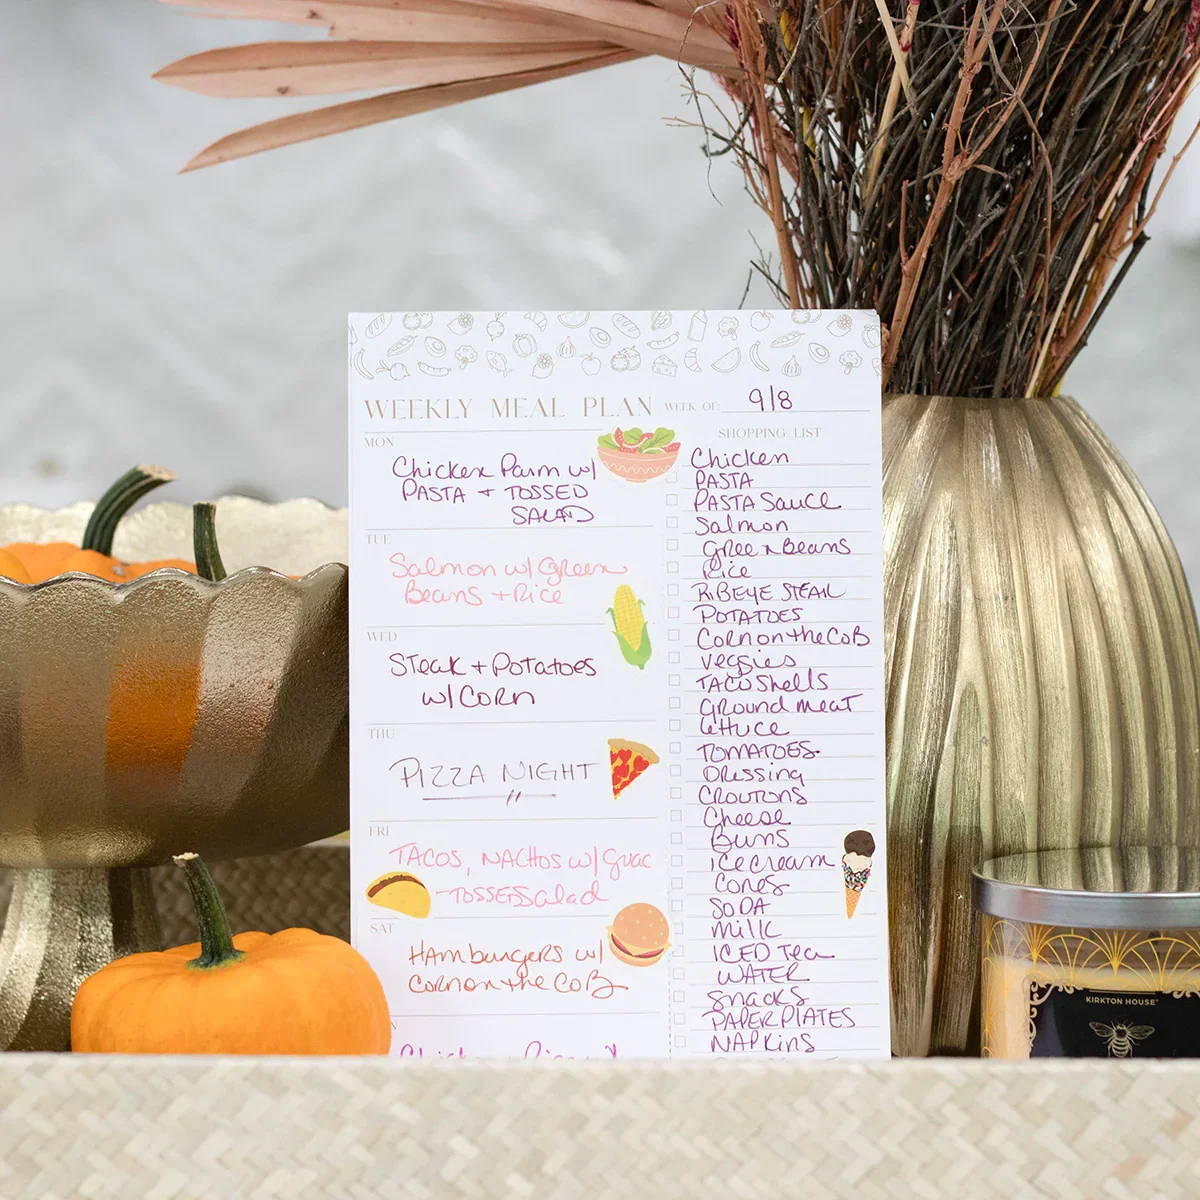 WEEKLY MEAL PLAN
WEEK OF: 9/8
MON
Chicken Parm w/
PASTA + TOSSED
SALAD
TUE
Salmon w/ Green
Beans + Rice
WED
Steak + Potatoes
w/ CORN
THU
PIZZA NIGHT
FRI
TACOS, NACHOS w/ Guac
-TOSSESSalad
SAT
HAmburgers w/
Corn on the CoB
Chicken
SHOPPING LIST
Chicken
PASTA
PASTA Sauce
Salmon
Green Beans
Rice
RIBEYE STEAK
POTATOES
Corn on the CoB
veggies
TACO Shells
Ground meat
lettuce
TOMATOES
Dressing
CROUTONS
Cheese
Buns
ice cream
Cones
SODA
milk
ICED Tea
WATER
snacks
PAPER PlATES
NAPKins
KIRKTON HOUSE